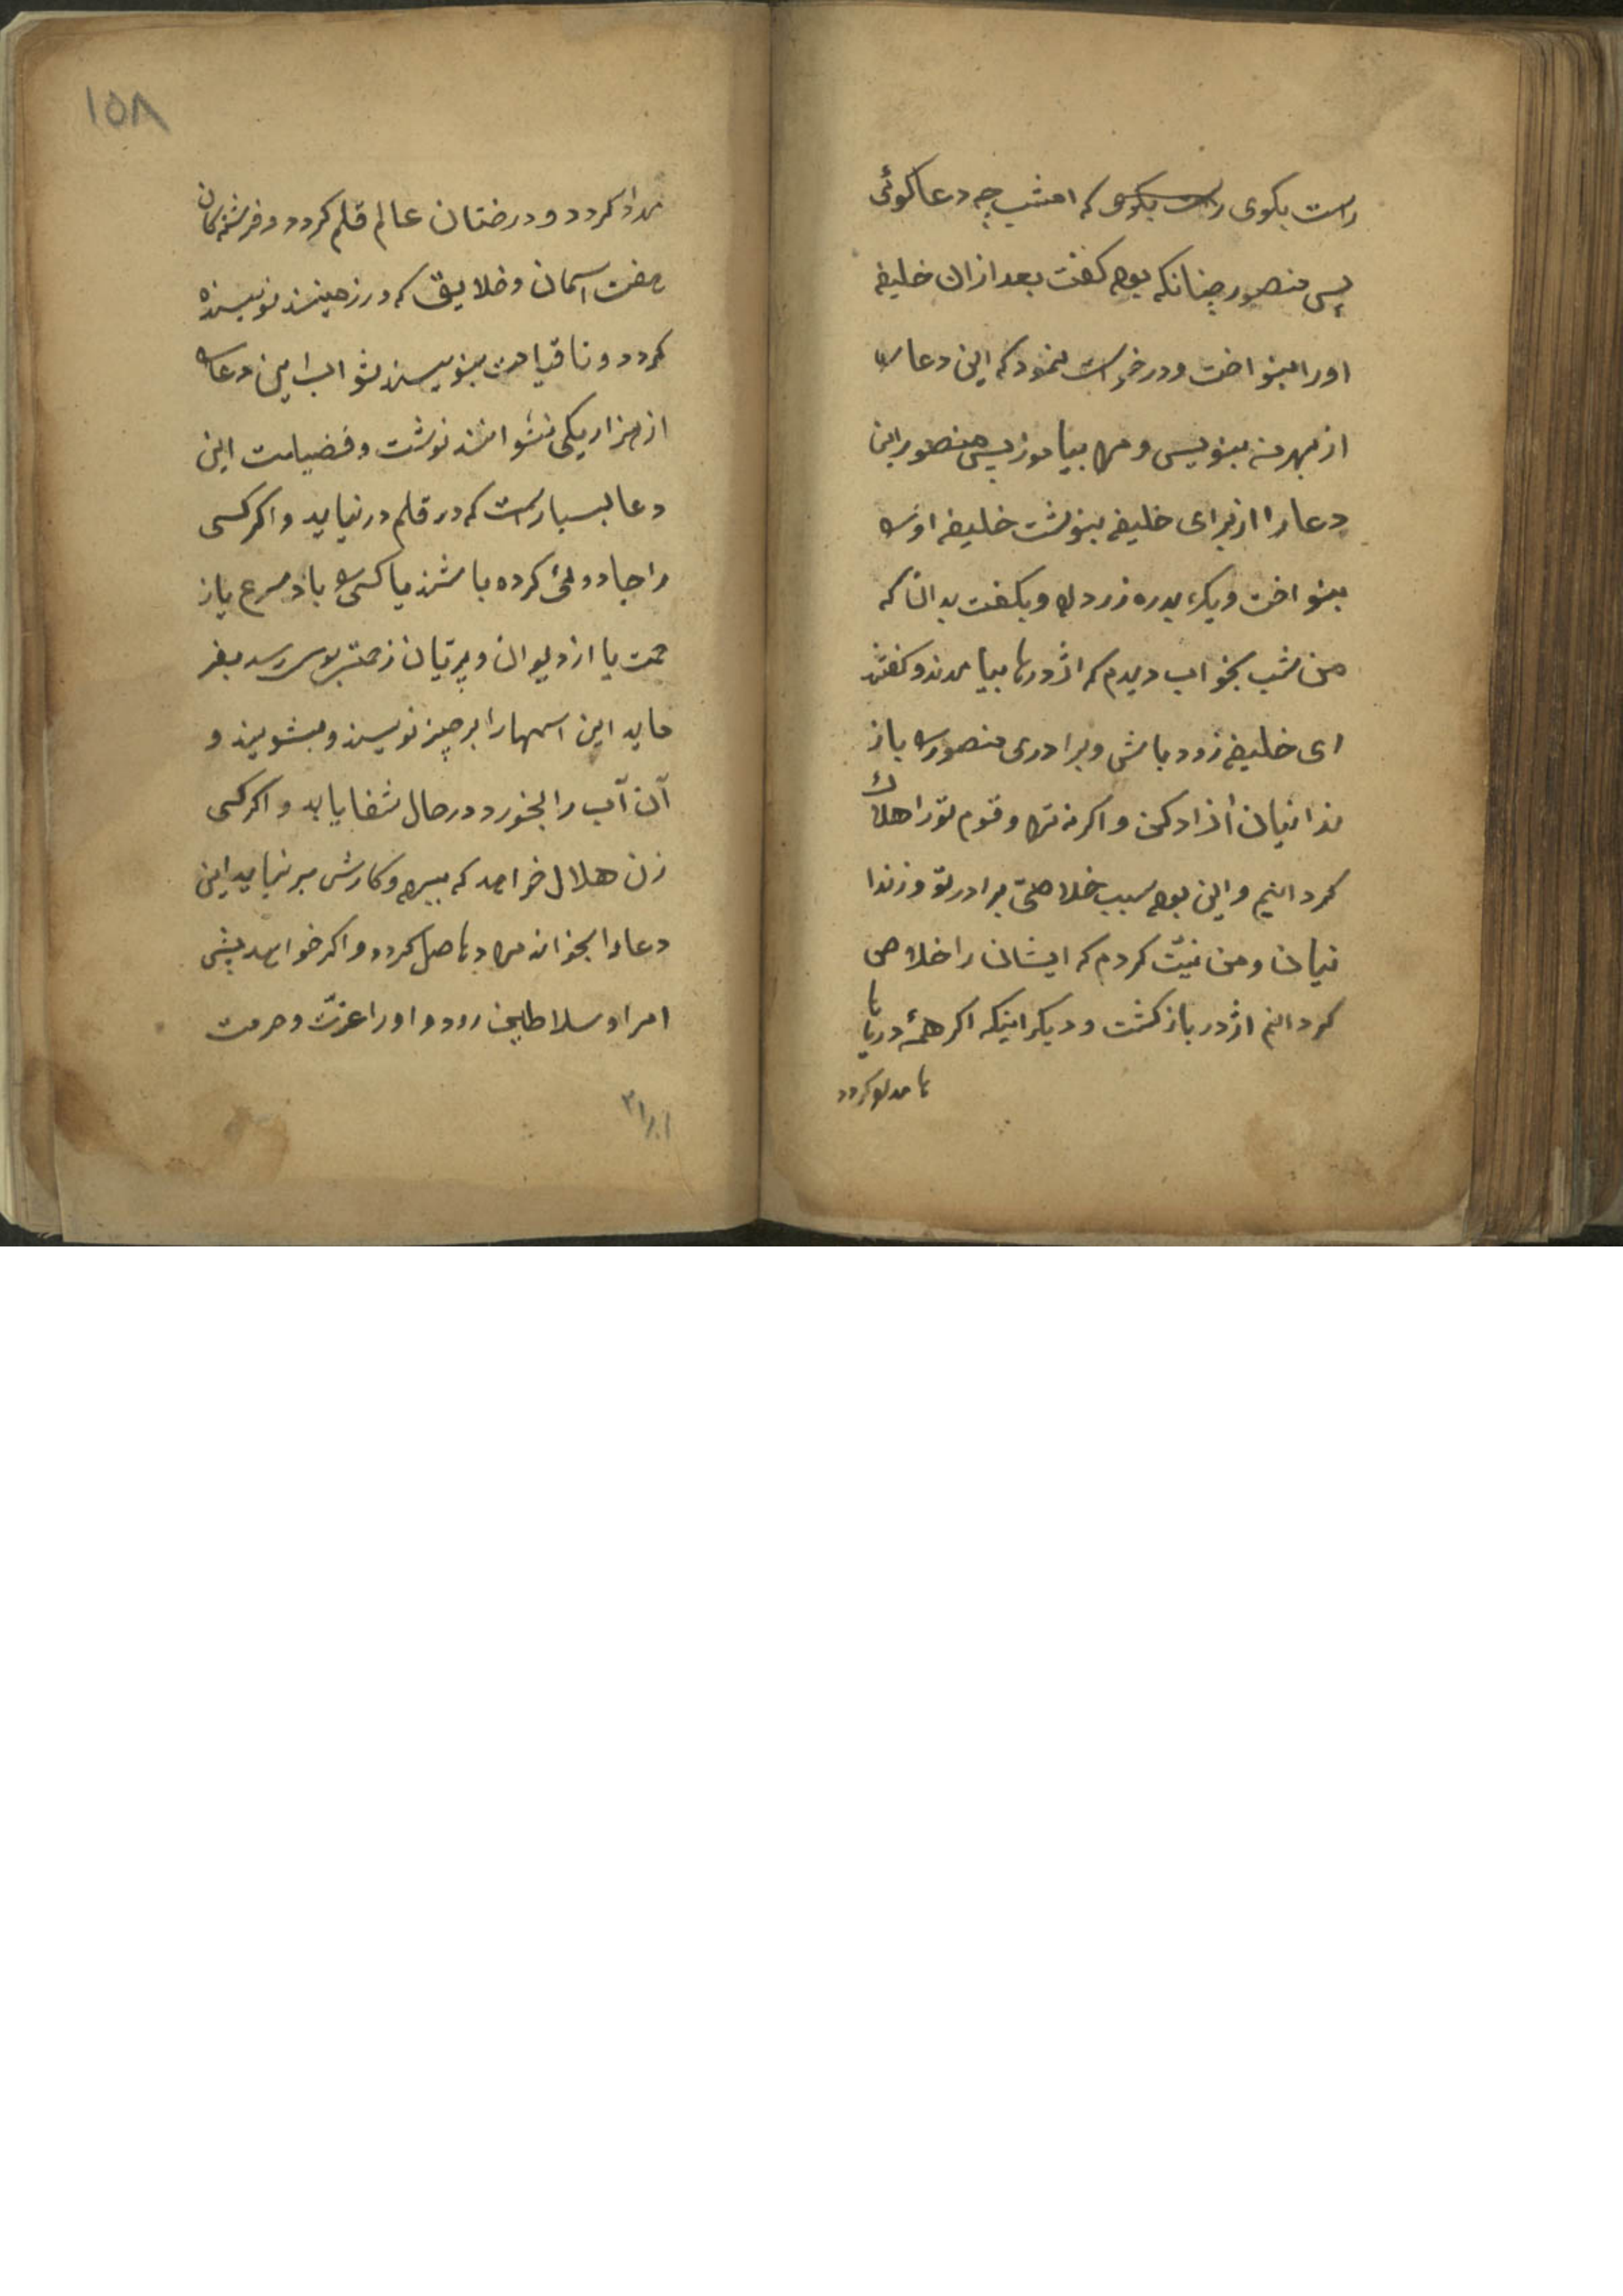 راست بکوی راست بکوی که امشب چه دعا کوئی
پس منصور چنانکه بود کفت بعد ازان خلیفه
اورا بنواخت ودرخواست نمود که این دعا را
از بهر من بنویس و مرا بیاموز پس منصور این
دعا را از برای خلیفه بنوشت خلیفه اورا
بنواخت ویک بدره زر داد و بکفت بدانکه
من شب بخواب دیدم که اژدرها بیامدند و کفتند
ای خلیفه زود باش و برادری منصور را باز
ندانیان آزاد کن و اکرنه ترا و قوم تورا هلاک
کردانیم و این بود سبب خلاصئ برادر تو و زندا
نیان و من نیّت کردم که ایشان را خلاص
کردانم اژدر باز کشت و دیکر اینکه اکر همهٔ دریا
ها
ها مداد کردد
۱۵۸
مداد کردد و درختان عالم قلم کردد و فرشتکان
هفت آسمان و خلایق که در زمینند نویسنده
کردد و تا قیامت بنویسند ثواب این دعا را
از هزار یکی نتوانند نوشت و فضیلت این
دعا بسیار است که در قلم در نیاید و اکر کسی
را جادوئی کرده باشند یا کسی را باد سرع یاز
حمت یا از دیوان و پریان زحمتی بوی رسد بفر
ماید این اسمها را بر چینی نویسند و بشویند و
آن آب را بخورد در حال شفا یابد و اکر کسی
زن هلال خواهد که ببرد و کارش بر نیاید این
دعا را بخواند مراد حاصل کردد و اکر خواهد پیش
امرا و سلاطین رود و اورا عزّت و حرمت